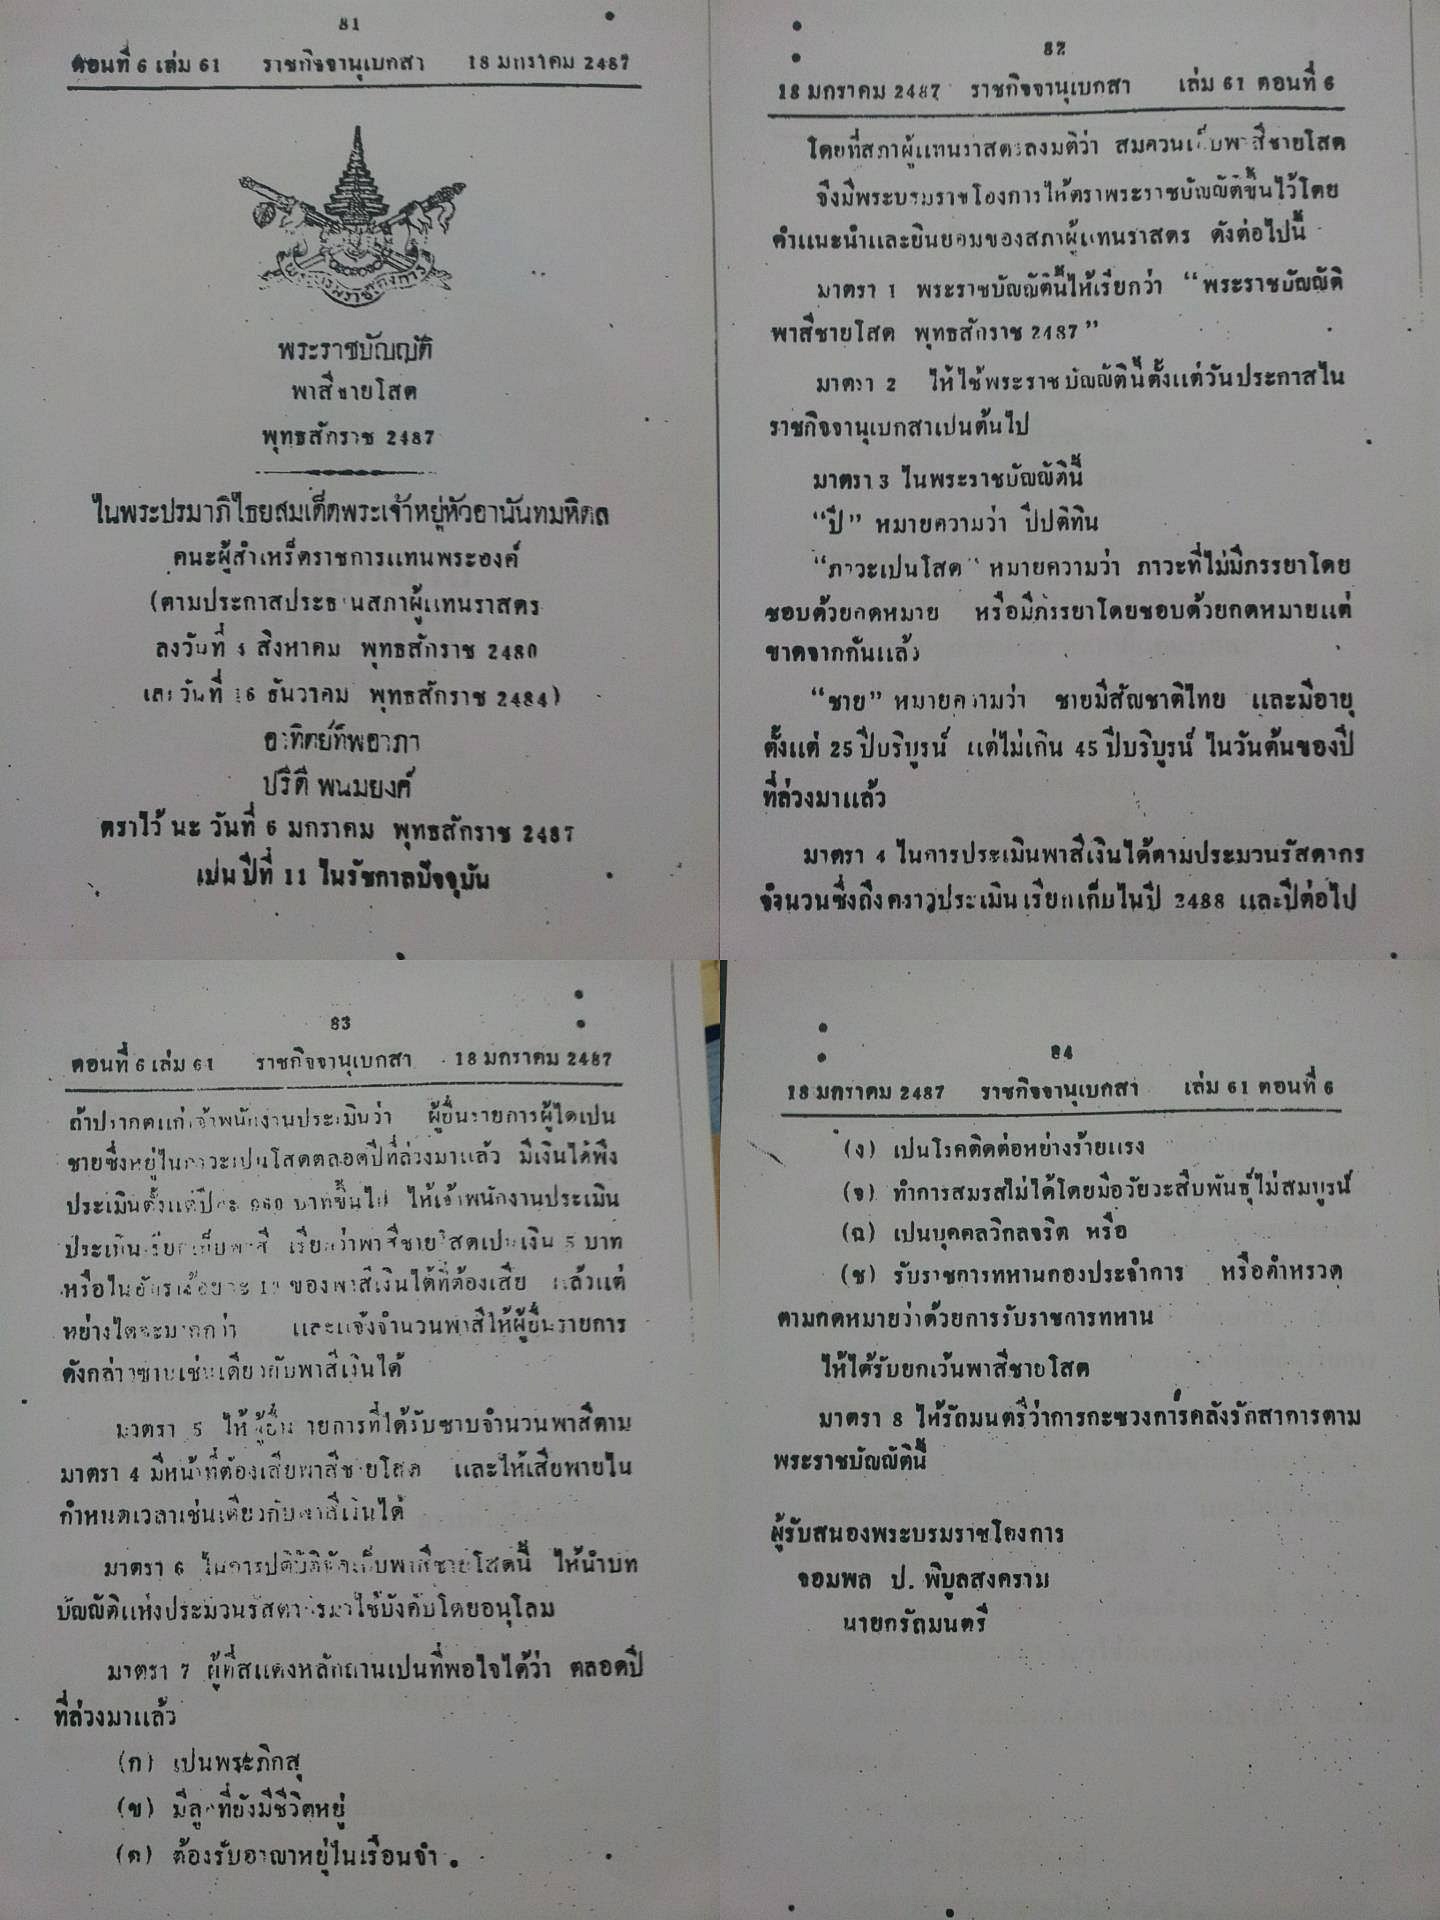 81
ตอนที่ 6 เล่ม 61 ราชกิจจานุเบกสา 18 มกราคม 2487
พระบรมราชโองการ
พระราชบัญญัติ
พาสีชายโสด
พุทธสักราช 2487
ไนพระปรมาภิไธยสมเด็ดพระเจ้าหยู่หัวอานันทมหิดล
คนะผู้สำเหร็ดราชการแทนพระองค์
(ตามประกาสประธานสภาผู้แทนราสดร
ลงวันที่ 4 สิงหาคม พุทธสักราช 2480
และวันที่ 16 ธันวาคม พุทธสักราช 2484)
อาทิตย์ทิพอาภา
ปรีดี พนมยงค์
ตราไว้ นะ วันที่ 6 มกราคม พุทธสักราช 2487
เปนปีที่ 11 ไนรัชกาลปัจจุบัน
82
18 มกราคม 2487 ราชกิจจานุเบกสา เล่ม 61 ตอนที่ 6
โดยที่สภาผู้แทนราสดรลงมติว่า สมควนเก็บพาสีชายโสด
จึงมีพระบรมราชโองการไห้ตราพระราชบัญญัติขึ้นไว้โดย
คำแนะนำและยินยอมของสภาผู้แทนราสดร ดังต่อไปนี้
มาตรา 1 พระราชบัญญัตินี้ไห้เรียกว่า “พระราชบัญญัติ
พาสีชายโสด พุทธสักราช 2487”
มาตรา 2 ไห้ไช้พระราชบัญญัตินี้ตั้งแต่วันประกาสไน
ราชกิจจานุเบกสาเปนต้นไป
มาตรา 3 ไนพระราชบัญญัตินี้
“ปี” หมายความว่า ปีปติทิน
“ภาวะเปนโสด” หมายความว่า ภาวะที่ไม่มีภรรยาโดย
ชอบด้วยกดหมาย หรือมีภรรยาโดยชอบด้วยกดหมายแต่
ขาดจากกันแล้ว
“ชาย” หมายความว่า ชายมีสัญชาติไทย และมีอายุ
ตั้งแต่ 25 ปีบริบูรน์ แต่ไม่เกิน 45 ปีบริบูรน์ ไนวันต้นของปี
ที่ล่วงมาแล้ว
มาตรา 4 ไนการประเมินพาสีเงินได้ตามประมวนรัสดากร
จำนวนซึ่งถึงคราวประเมินเรียกเก็บไนปี 2488 และปีต่อไป
83
ตอนที่ 6 เล่ม 61 ราชกิจจานุเบกสา 18 มกราคม 2487
ถ้าปรากตแก่เจ้าพนักงานประเมินว่า ผู้ยื่นรายการผู้ไดเปน
ชายซึ่งหยู่ไนภาวะเปนโสดตลอดปีที่ล่วงมาแล้ว มีเงินได้พึง
ประเมินตั้งแต่ปีละ 960 บาทขึ้นไป ไห้เจ้าพนักงานประเมิน
ประเมินเรียกเก็บพาสี เรียกว่าพาสีชายโสดเปนเงิน 5 บาท
หรือไนอัตราร้อยละ ของพาสีเงินได้ที่ต้องเสีย แล้วแต่
หย่างไดจะมากกว่า และแจ้งจำนวนพาสีไห้ผู้ยื่นรายการ
ดังกล่าวซาบเช่นเดียวกับพาสีเงินได้
มาตรา 5 ไห้ผู้ยื่นรายการที่ได้รับซาบจำนวนพาสีตาม
มาตรา 4 มีหน้าที่ต้องเสียพาสีชายโสด และไห้เสียพายไน
กำหนดเวลาเช่นเดียวกับพาสีเงินได้
มาตรา 6 ไนการปติบัติจัดเก็บพาสีชายโสดนี้ ไห้นำบท
บัญญัติแห่งประมวนรัสดากรมาไช้บังคับโดยอนุโลม
มาตรา 7 ผู้ที่สแดงหลักถานเปนที่พอไจได้ว่า ตลอดปี
ที่ล่วงมาแล้ว
(ก) เปนพระภิกสุ
(ข) มีลูกที่ยังมีชีวิตหยู่
(ค) ต้องรับอาญาหยู่ไนเรือนจำ
84
18 มกราคม 2487 ราชกิจจานุเบกสา เล่ม 61 ตอนที่ 6
(ง) เปนโรคติดต่อหย่างร้ายแรง
(จ) ทำการสมรสไม่ได้โดยมีอวัยวะสืบพันธุ์ไม่สมบูรน์
(ฉ) เปนบุคคลวิกลจริต หรือ
(ช) รับราชการทหานกองประจำการ หรือตำหรวด
ตามกดหมายว่าด้วยการรับราชการทหาน
ไห้ได้รับยกเว้นพาสีชายโสด
มาตรา 8 ไห้รัถมนตรีว่าการกะซวงการคลังรักสาการตาม
พระราชบัญญัตินี้
ผู้รับสนองพระบรมราชโองการ
จอมพล ป. พิบูลสงคราม
นายกรัถมนตรี